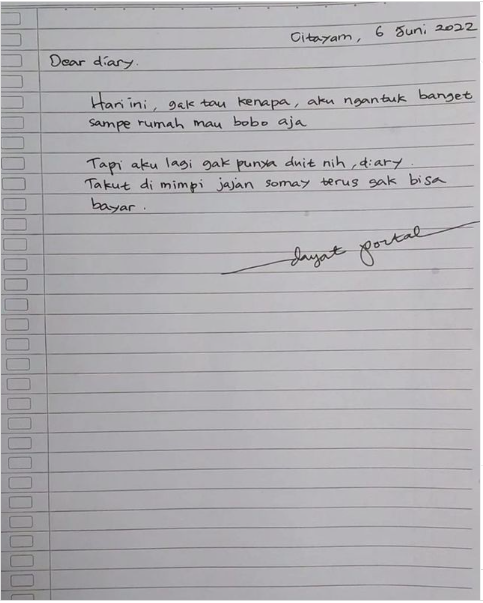 Citayam, 6 Juni 2022
Dear diary.
Hari ini, gak tau kenapa, aku ngantuk banget
sampe rumah mau bobo aja
Tapi aku lagi gak punya duit nih, diary.
Takut di mimpi jajan somay terus gak bisa
bayar.
dayat portal